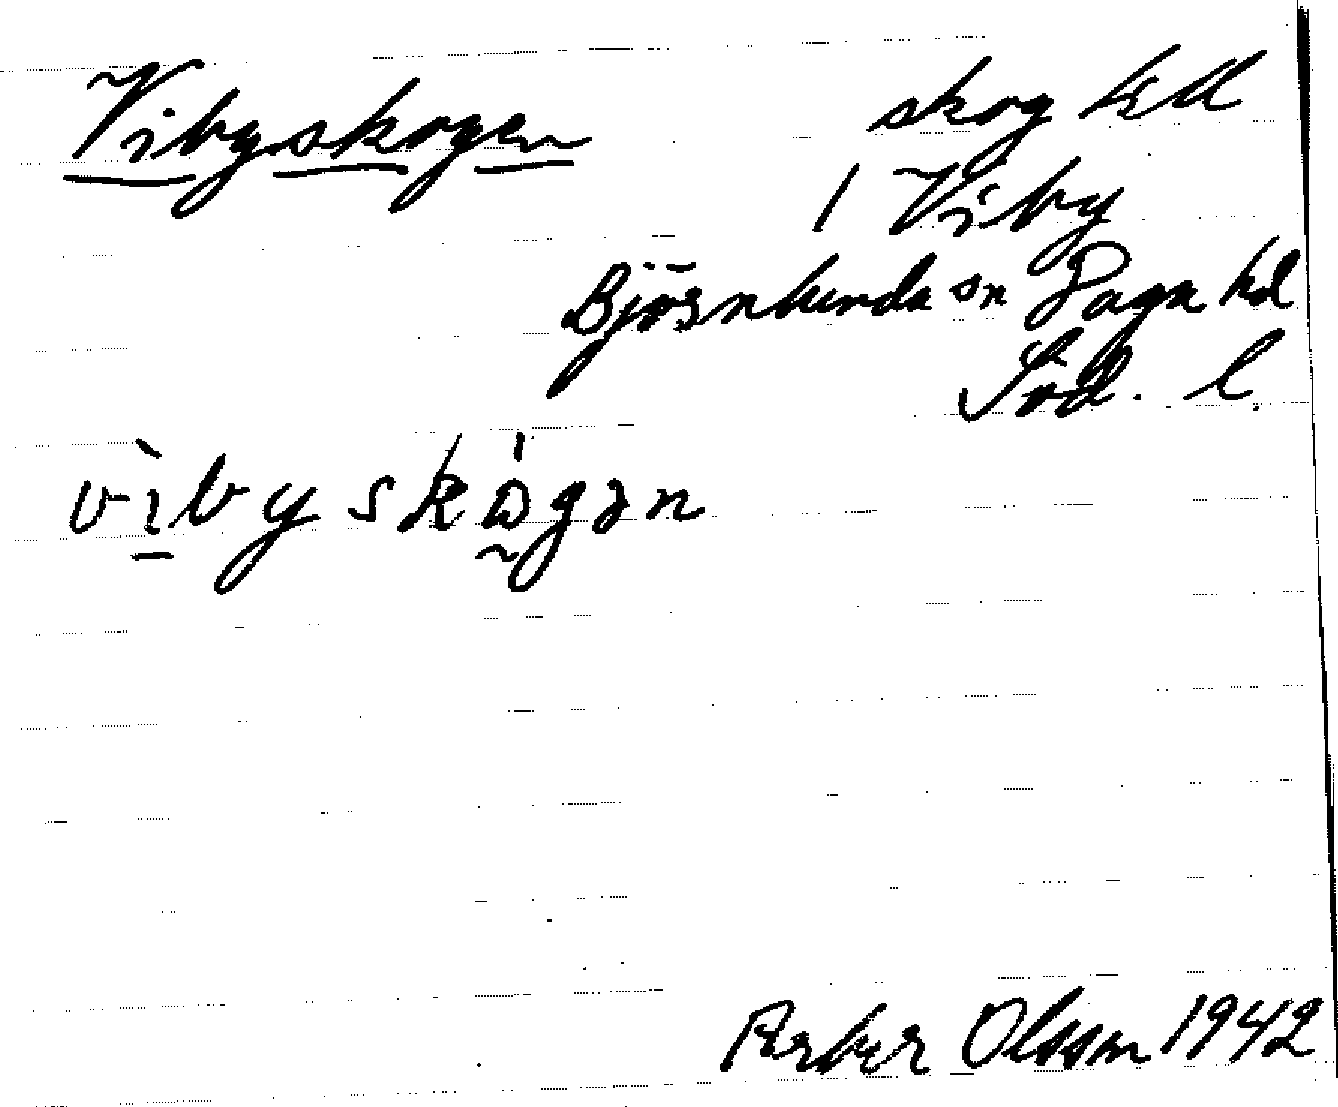 Vibyskogen
skog till
/ Viby
Björnlunda sn Daga hd
Söd. l.
vìbyskógən
Olsson 1942